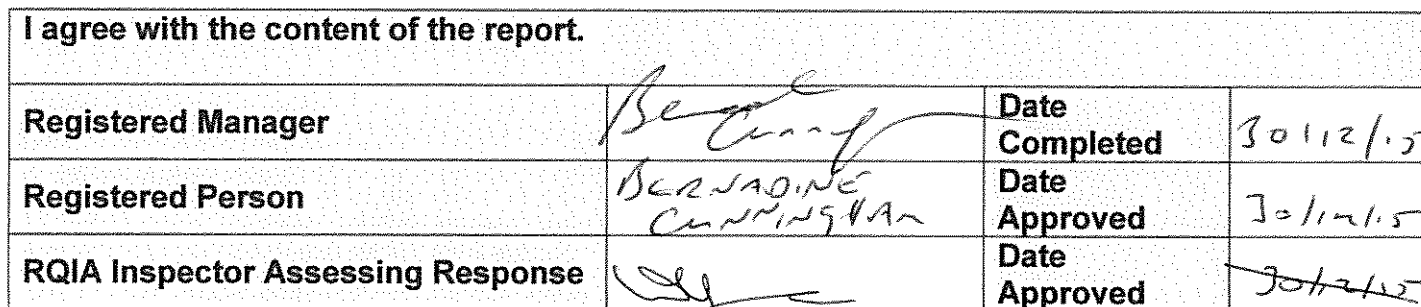 I agree with the content of the report.
Registered Manager Date Completed 30/12/15
Registered Person BERNADINE CUNNINGHAM Date Approved 30/12/15
RQIA Inspector Assessing Response Date Approved 30/12/15